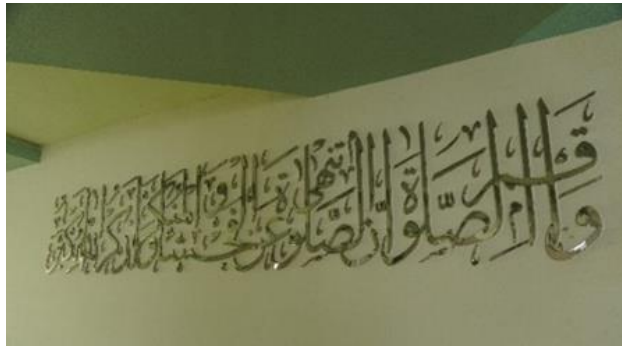 واقم الصلوة ان الصلوة تنهى عن الفحشاء والمنكر ولذكر الله اكبر